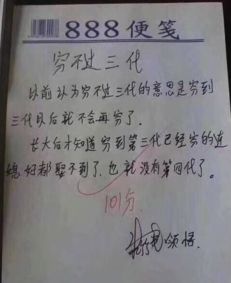 888便笺
穷不过三代
以前认为穷不过三代的意思是穷到
三代以后就不会再穷了。
长大后才知道穷到第三代已经穷的连
媳妇都娶不到了，也就没有第四代了。
101分
领悟.